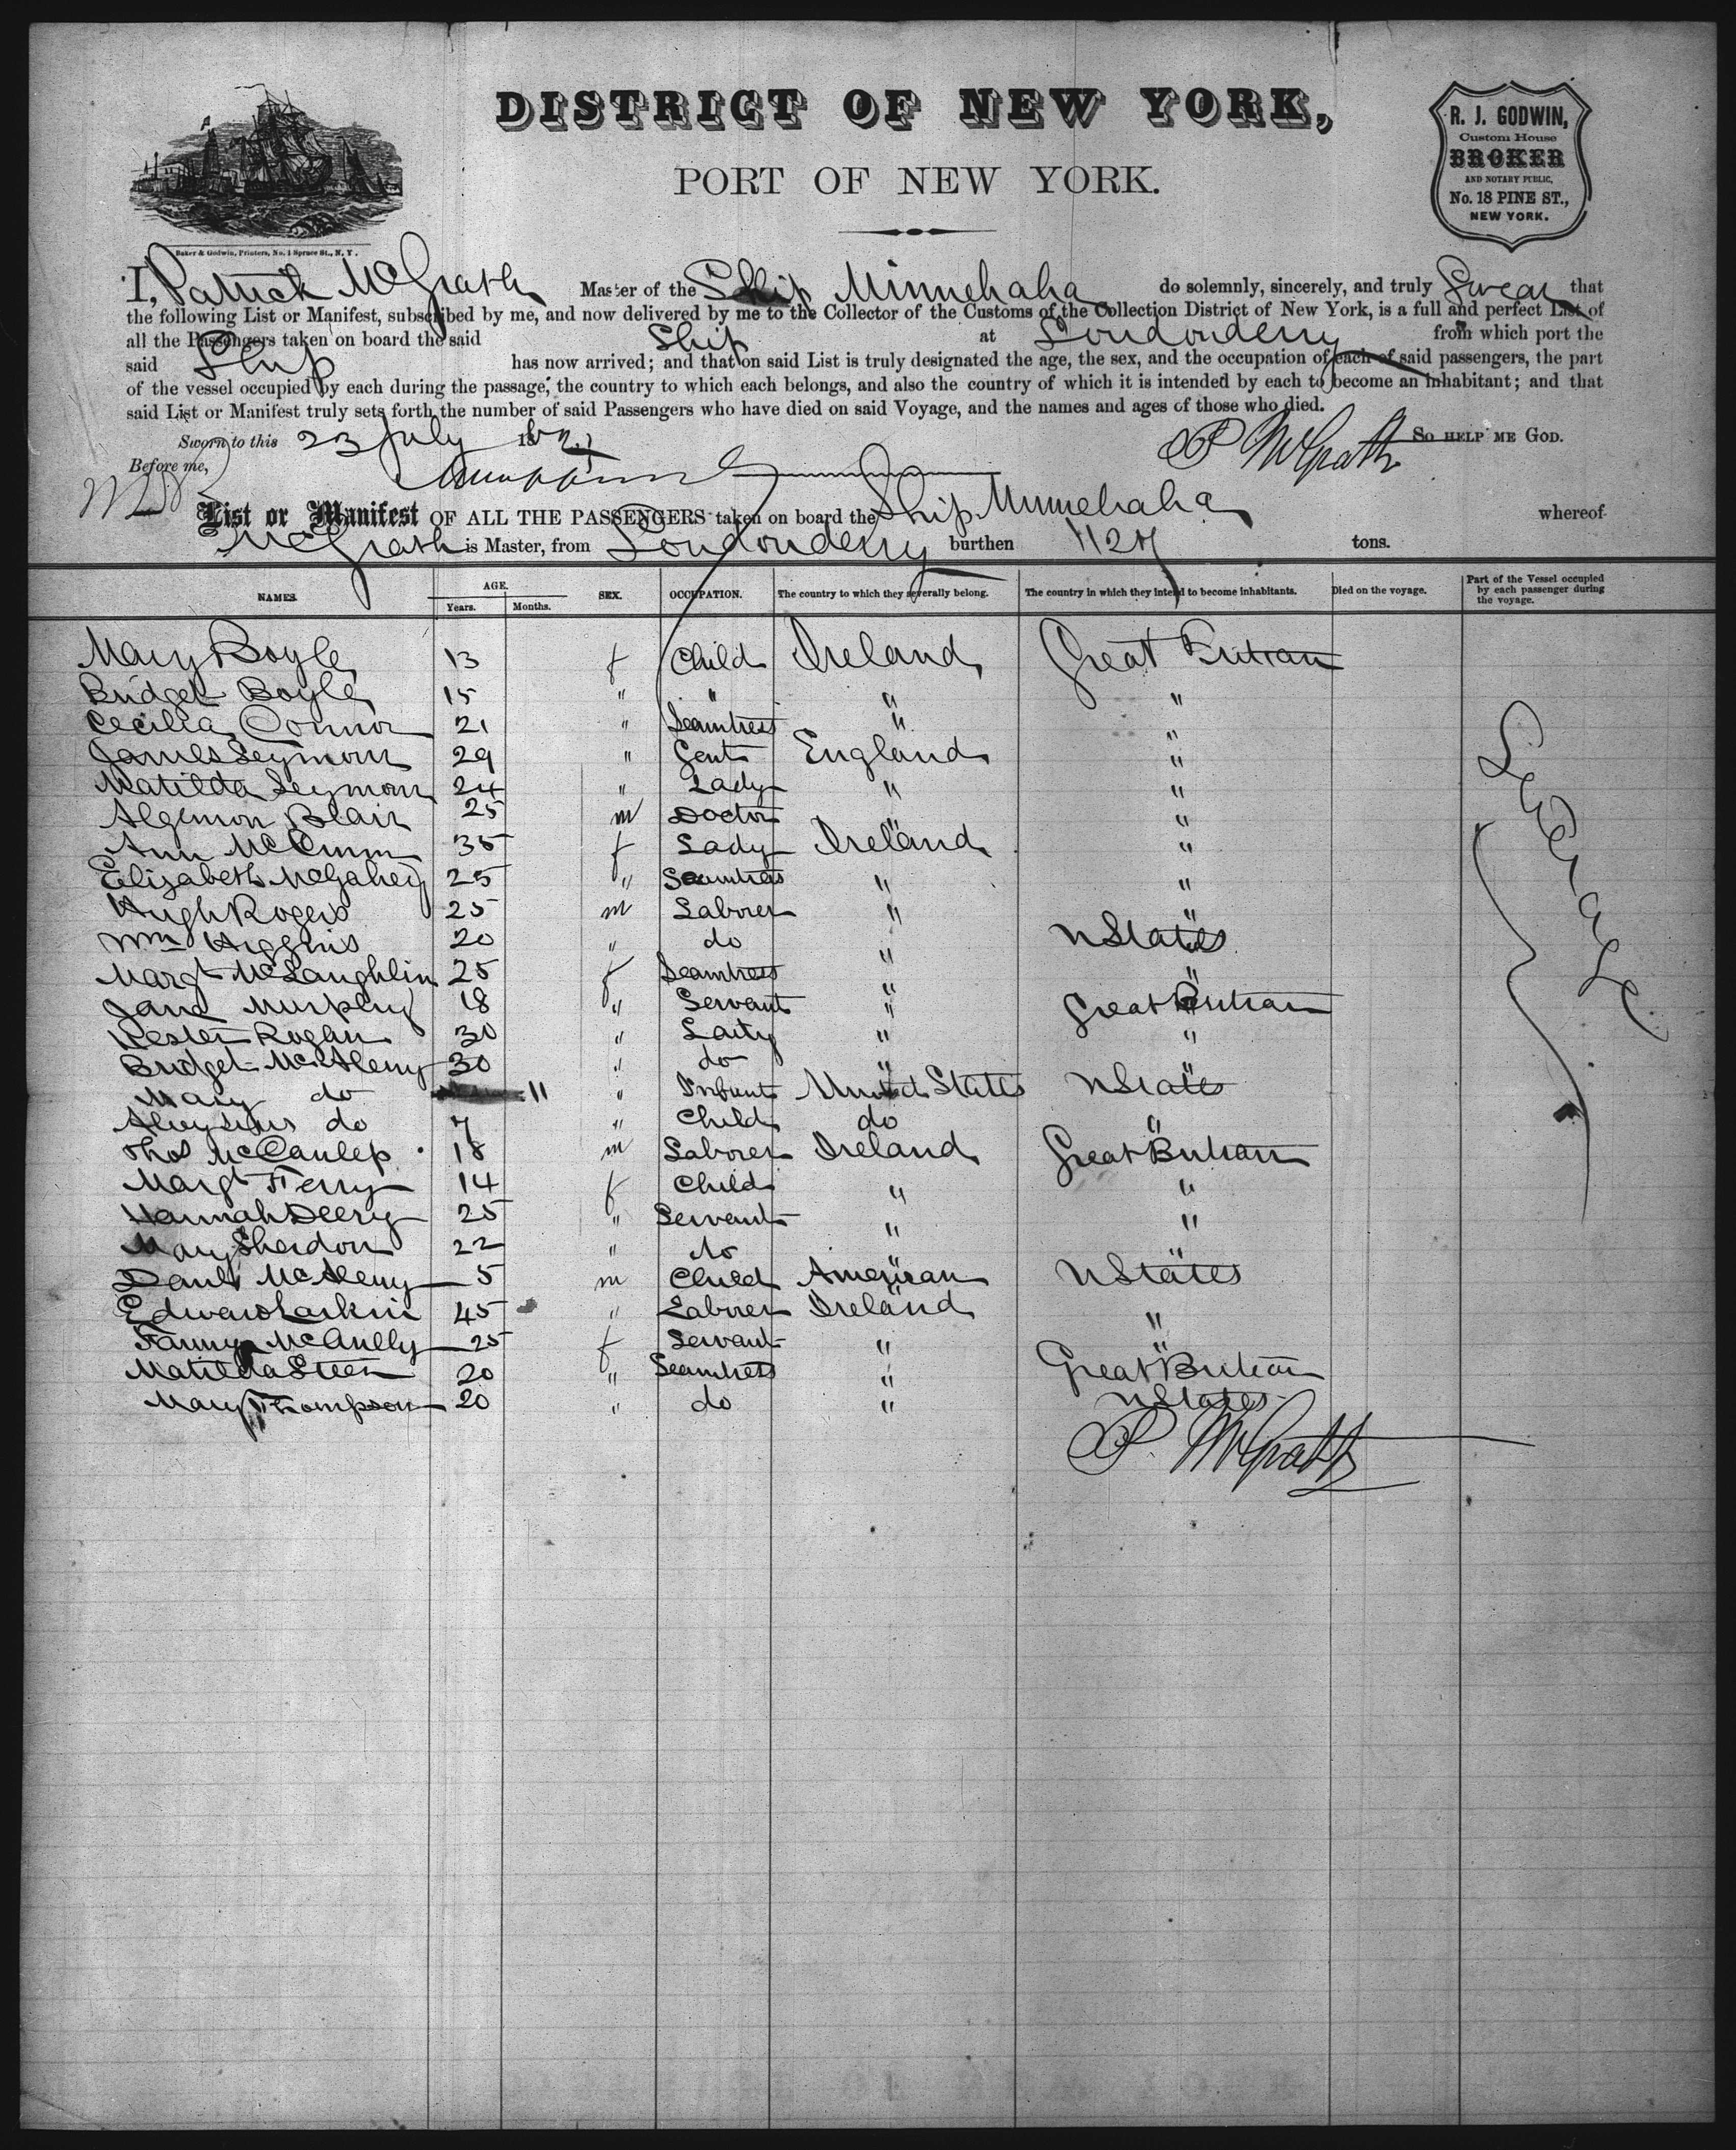 DISTRICT OF NEW YORK,
PORT OF NEW YORK.
R. J. GODWIN,
Custom House
BROKER
AND NOTARY PUBLIC,
No. 18 PINE ST.,
NEW YORK.
Baker & Godwin, Printers, No. 1 Spruce St., N. Y.
I, Patrick McGrath Master of the Ship Minnehaha do solemnly, sincerely, and truly Swear that
the following List or Manifest, subscribed by me, and now delivered by me to the Collector of the Customs of the Collection District of New York, is a full and perfect List of
all the Passengers taken on board the said Ship at Londonderry from which port the
said Ship has now arrived; and that on said List is truly designated the age, the sex, and the occupation of each of said passengers, the part
of the vessel occupied by each during the passage, the country to which each belongs, and also the country of which it is intended by each to become an inhabitant; and that
said List or Manifest truly sets forth the number of said Passengers who have died on said Voyage, and the names and ages of those who died.
Sworn to this 23 July 18 P McGrath SO HELP ME GOD.
Before me,
List or Manifest OF ALL THE PASSENGERS taken on board the Ship Minnehaha whereof
McGrath is Master, from Londonderry burthen tons.
NAMES. AGE. Years. Months. SEX. OCCUPATION. The country to which they severally belong. The country in which they intend to become inhabitants. Died on the voyage. Part of the Vessel occupied by each passenger during the voyage.
Mary Boyle 13 f Child Ireland Great Britian
Bridget Boyle 15 " " " "
Cecilia Connor 21 " Seamtress " "
James Seymour 29 " Gent England "
Matilda Seymour 24 " Lady " "
Algernon Blair 25 m Doctor " "
Ann McCrum 35 f Lady Ireland "
Elizabeth McGahey 25 " Seamtress " "
Hugh Rogers 25 m Laborer " "
Wm Higgins 20 " do " UStates
Margt McLaughlin 25 f Seamtress " "
Jane Murphy 18 " Servant " Great Britian
Hester Rogan 30 " Laity " "
Bridget McAleny 30 " do " "
Mary do 11 " Infant United States UStates
Aloysius do 7 " Child do "
Thos McCauley 18 m Laborer Ireland Great Britian
Margt Ferry 14 f Child " "
Hannah Deery 25 " Servant " "
Mary Sheridon 22 " do " "
Danl McAleny 5 m Child American UStates
Edward Larkin 45 " Laborer Ireland "
Fanny McAnelly 25 f Servant " "
Matilda Steen 20 " Seamtress " Great Britian
Mary Thompson 20 " do " UStates
Steerage
P. McGrath